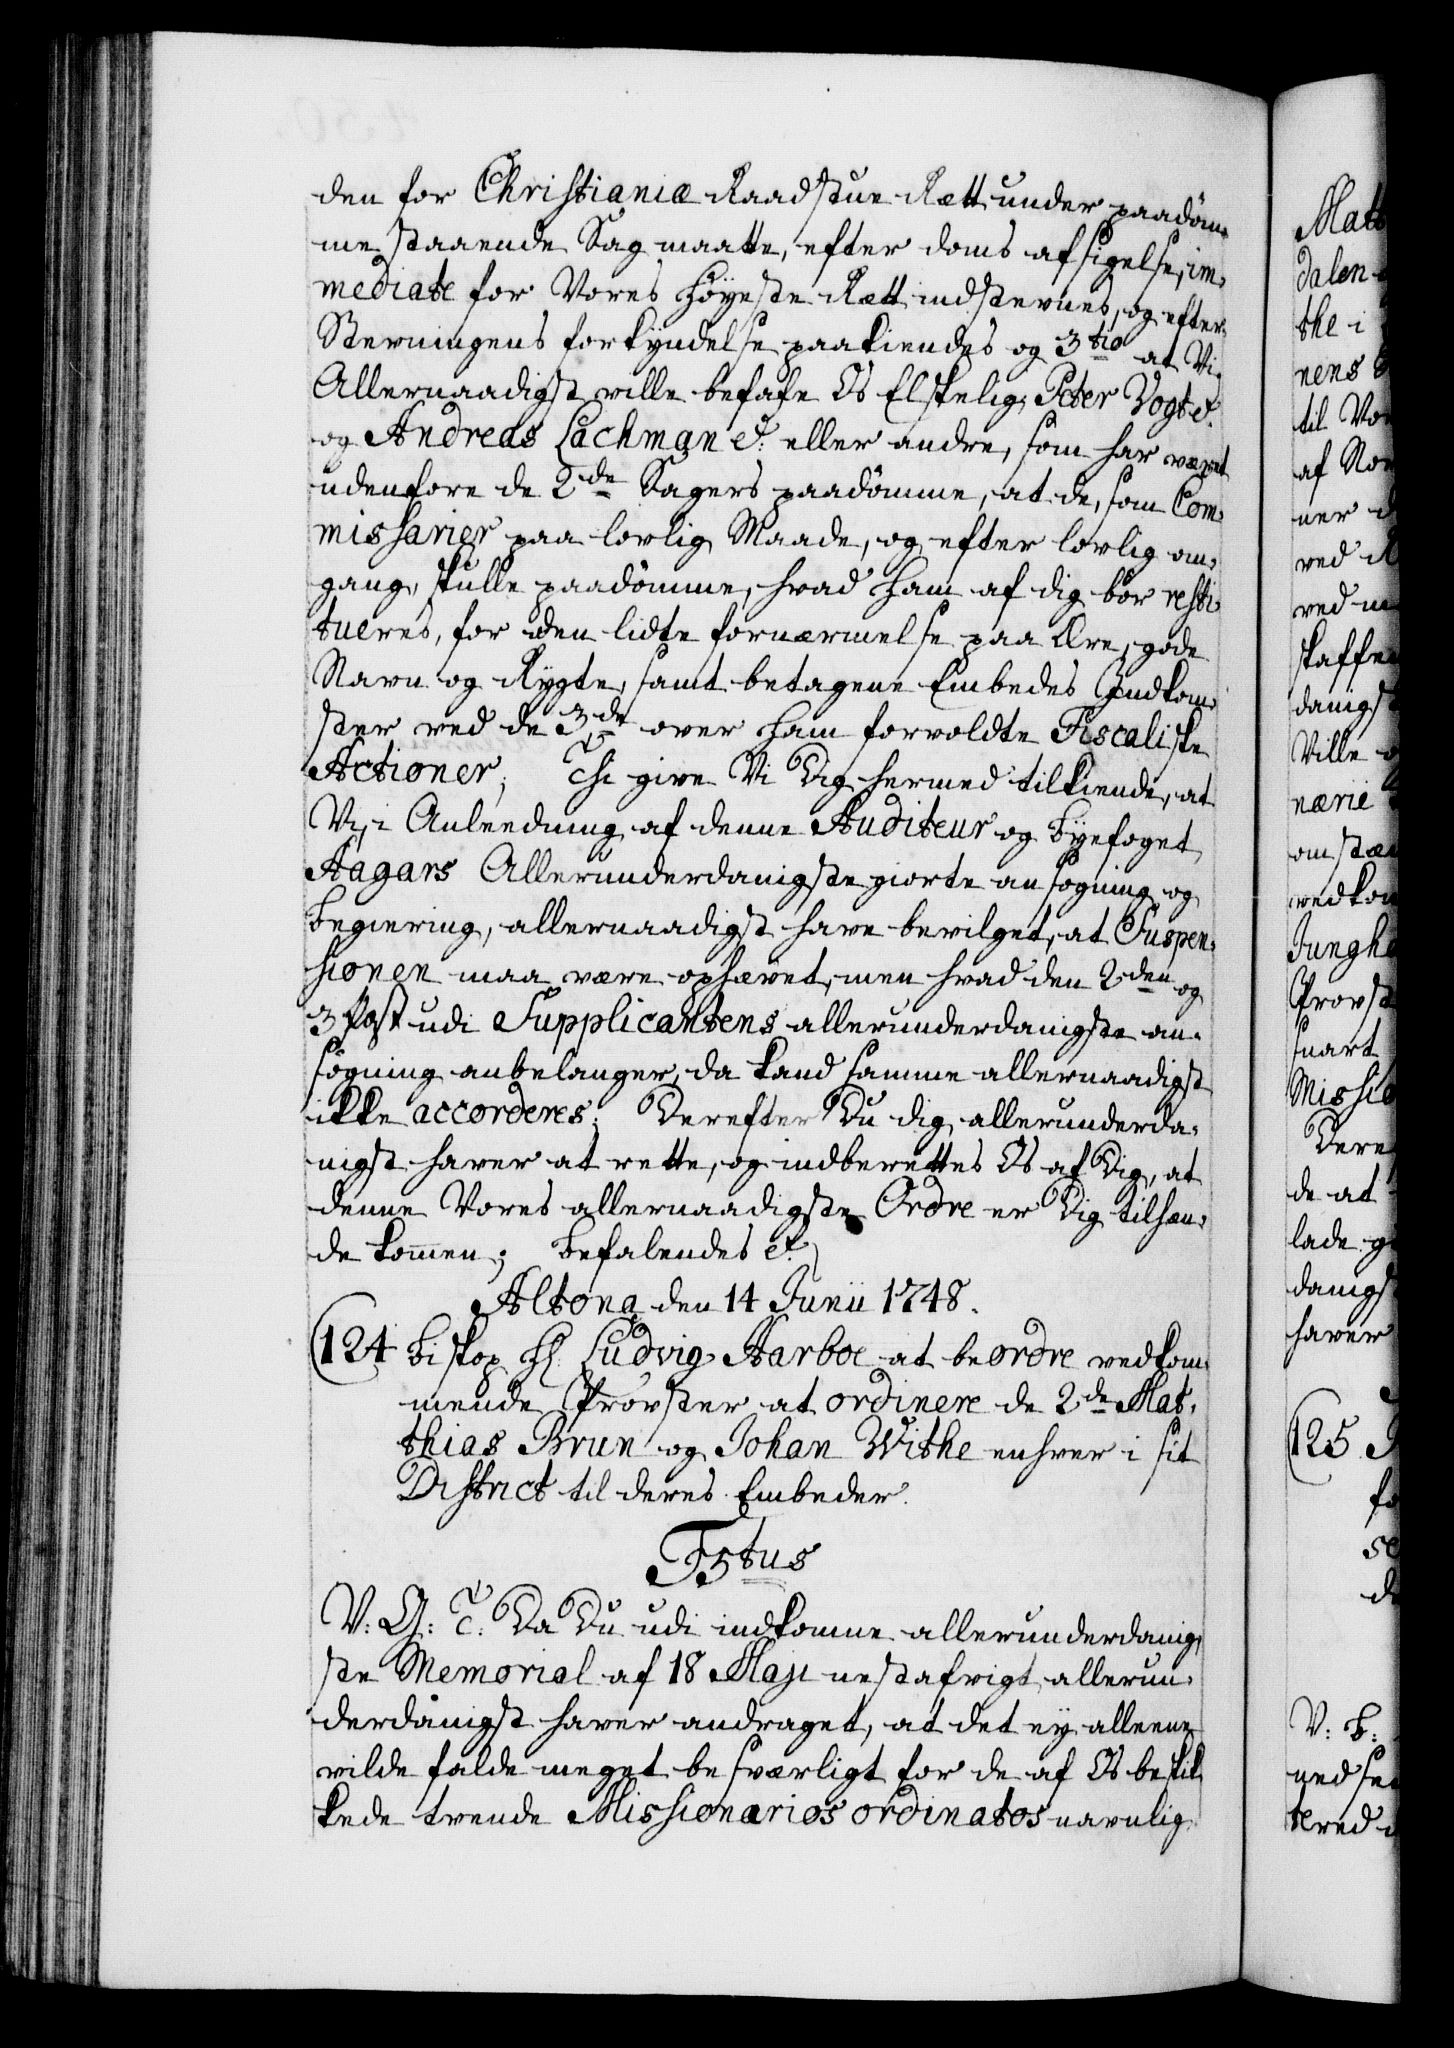 den for Christianiæ Raadstue Rætt under paadöm-
me staaende Sag maatte, efter doms afsigelse, im-
mediate for Vores Höyeste Rætt indstevnes, og efter
Stevningens forkyndelse paakiendes og 3tio at Vi
Allernaadigst ville befale Os Elskelig Peter Vogt &.
og Andreas Lachman &. eller andre, som har været
udenfore de 2de Sagers paadömme, at de, som Com-
missarier paa lovlig Maade, og efter lovlig om-
gang, skulle paadömme, hvad ham af dig bör resti-
tueres, for den lidte fornærmelse paa Ære, gode
Navn og Rygte, samt betagene Embedes Indkom-
ster ved de 3de over ham forvoldte Fiscaliske
Actioner; Thi give Vi Dig hermed tilkiende, at
Vi, i Anleedning af denne Auditeur og Byefoget
Aagars Allerunderdanigste giorte ansøgning og
Begiering, allernaadigst have bevilget, at Suspen-
sionen maa være ophævet, men hvad den 2den og
3 Post udi Supplicantens allerunderdanigste an-
søgning anbelanger, da kand samme allernaadigst
ikke accorderes; Derefter Du dig allerunderda-
nigst haver at rette, og indberettes Os af Dig, at
denne Vores allernaadigste Ordre er Dig tilhæn-
de kommen; Befalendes &.
Altona den 14 Junii 1748.
(124 Biskop Hr. Ludvig Harboe at beordre vedkom-
mende Provster at ordinere de 2de Mat-
thias Brun og Johan Withe enhver i sit
District til deres Embeder.
F5tus
V: G: T. Da Du udi indkomne allerunderdanig-
ste Memorial af 18 Maji nestafvigt allerun-
derdanigst haver andraget, at det ey alleene
vilde falde meget besværligt for de af Os beskik-
kede trende Missionarios ordinatos navnlig
Matt
dalen
the i
nens
til Vor
af Nor
ner
ved
ved
skaffe
danigst
Ville
nærie
omstæn
vedkom
Junghe
Provst
snart
Missio
Dere
de at
lade
danigst
haver
(125
fo
se
de
V: B:
nedse
tered